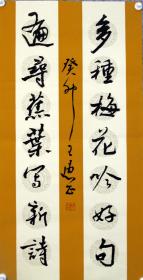 多種梅花吟好句
遍尋蕉葉寫新詩
癸卯